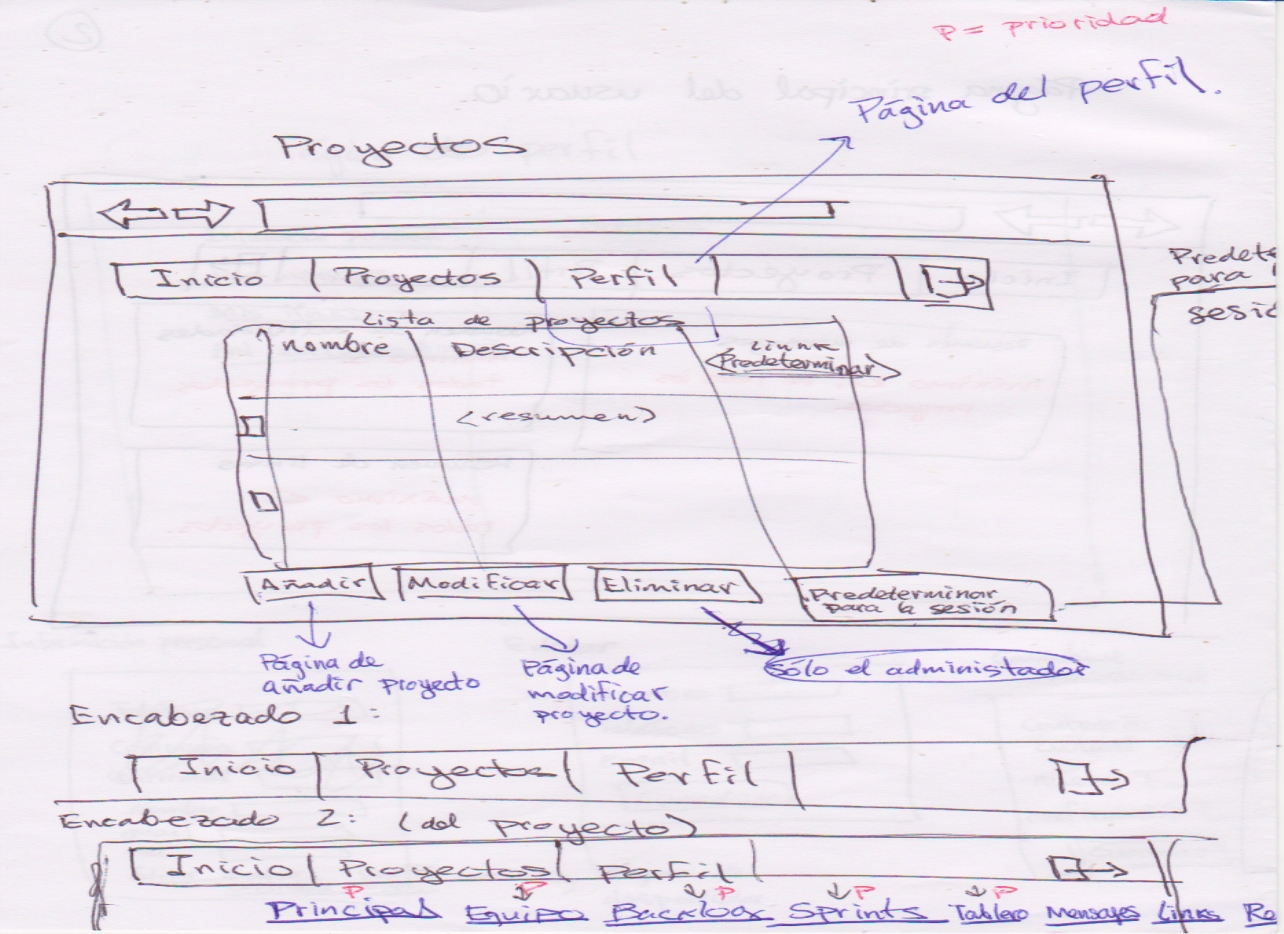 P = prioridad
Página del perfil.
Proyectos
Inicio Proyectos Perfil
Predete
para l
sesió
Lista de proyectos
nombre Descripción Links
Predeterminar
<resumen>
Añadir Modificar Eliminar Predeterminar
para la sesión
Página de
añadir proyecto
Página de
modificar
proyecto.
Sólo el administador
Encabezado 1:
Inicio Proyectos Perfil
Encabezado 2: (del proyecto)
Inicio Proyectos Perfil
P P P P P
Principal Equipo Backlog Sprints Tablero Mensajes Links Ro